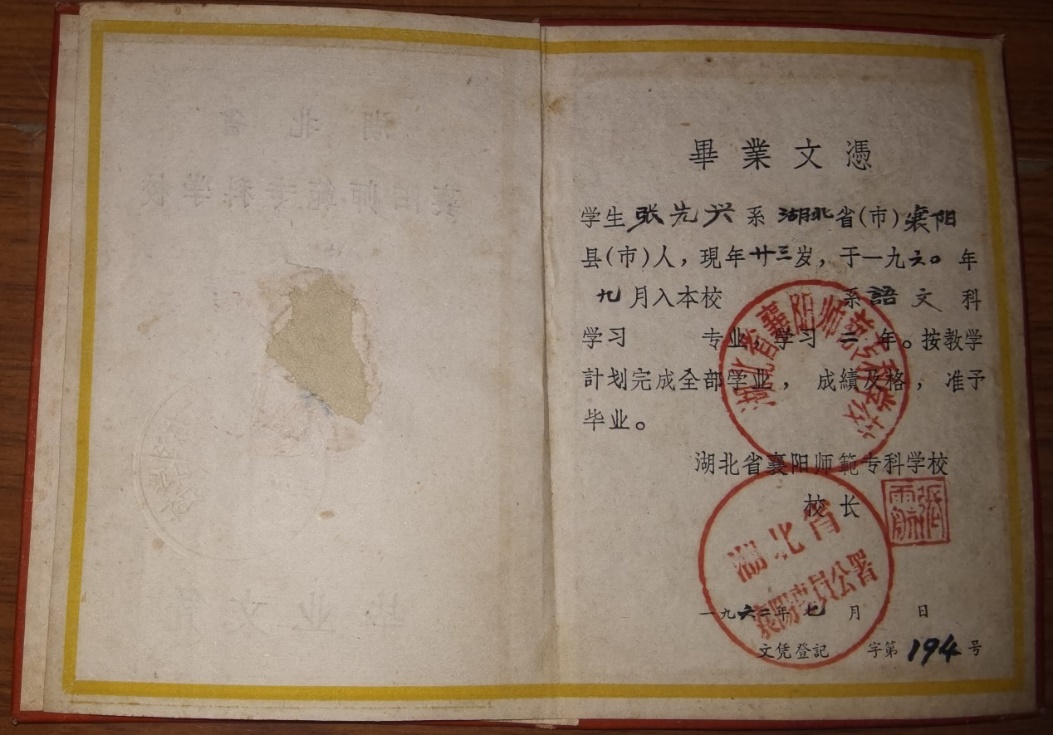 湖北省
襄阳师範专科学校
毕业文凭
畢業文憑
学生张先兴系湖北省(市)襄阳
县(市)人，現年廿三岁，于一九六〇年
九月入本校 系語文科
学习 专业，学习二年。按教学
計划完成全部学业，成績及格，准予
毕业。
湖北省襄阳师範专科学校
湖北省襄阳师範专科学校
校长
湖北省
襄阳专员公署
一九六二年七月 日
文凭登記 字第194号